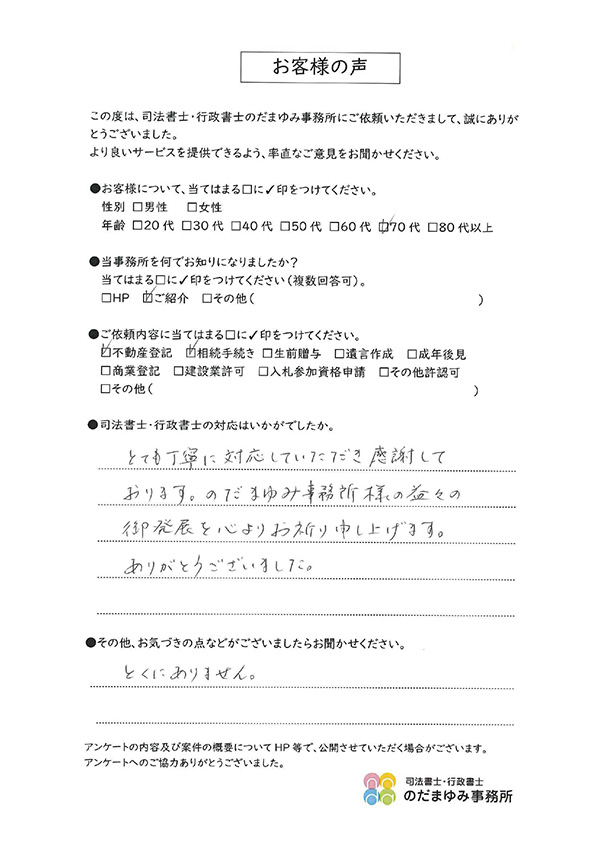 お客様の声
この度は、司法書士・行政書士のだまゆみ事務所にご依頼いただきまして、誠にありが
とうございました。
より良いサービスを提供できるよう、率直なご意見をお聞かせください。
●お客様について、当てはまる□に✓印をつけてください。
性別 □男性 □女性
年齢 □20代 □30代 □40代 □50代 □60代 ☑70代 □80代以上
●当事務所を何でお知りになりましたか?
当てはまる□に✓印をつけてください(複数回答可)。
□HP ☑ご紹介 □その他( )
●ご依頼内容に当てはまる□に✓印をつけてください。
☑不動産登記 ☑相続手続き □生前贈与 □遺言作成 □成年後見
□商業登記 □建設業許可 □入札参加資格申請 □その他許認可
□その他( )
●司法書士・行政書士の対応はいかがでしたか。
とても丁寧に対応していただき感謝して
おります。のだまゆみ事務所様の益々の
御発展を心よりお祈り申し上げます。
ありがとうございました。
●その他、お気づきの点などがございましたらお聞かせください。
とくにありません。
アンケートの内容及び案件の概要についてHP等で、公開させていただく場合がございます。
アンケートへのご協力ありがとうございました。
司法書士・行政書士
のだまゆみ事務所